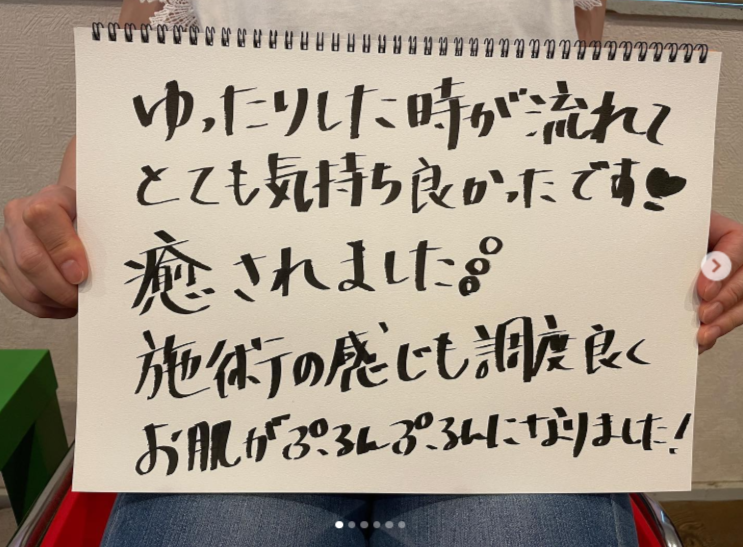 ゆったりした時が流れて
とても気持ち良かったです♥
癒されました。
施術の感じも調度良く
お肌がぷるんぷるんになりました!